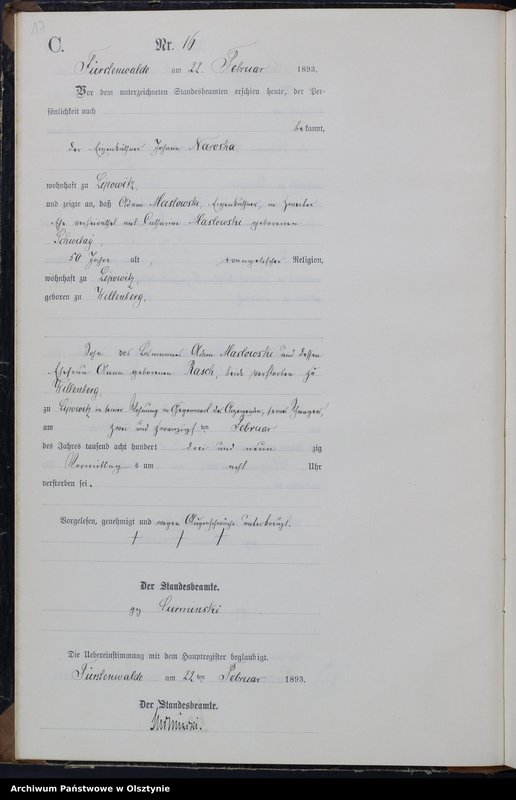 17
C.
Nr. 16
Fürstenwalde am 22. Februar 1893.
Vor dem unterzeichneten Standesbeamten erschien heute, der Per-
sönlichkeit nach
bekannt,
der Eigenkäthner Johann Naroska
wohnhaft zu Lipowitz,
und zeigte an, daß Adam Maslowski, Eigenkäthner, in zweiter
Ehe verheirathet mit Catharine Maslowski geborenen
50 Jahre alt, evangelischer Religion,
wohnhaft zu Lipowitz,
geboren zu Willenberg,
Sohn des Losmannes Adam Maslowski und dessen
Ehefrau Anna geborenen Rasch, beide verstorben zu
Willenberg,
zu Lipowitz in seiner Wohnung in Gegenwart des Anzeigenden, seines Schwagers,
am zwei und zwanzigsten Februar
des Jahres tausend acht hundert drei und neunzig
Vormittags um acht Uhr
verstorben sei.
Vorgelesen, genehmigt und wegen Augenschwäche unterkreuzt.
† † †
Der Standesbeamte.
gz
Die Uebereinstimmung mit dem Hauptregister beglaubigt.
Fürstenwalde am 22 ten Februar 1893.
Der Standesbeamte.
Archiwum Państwowe w Olsztynie